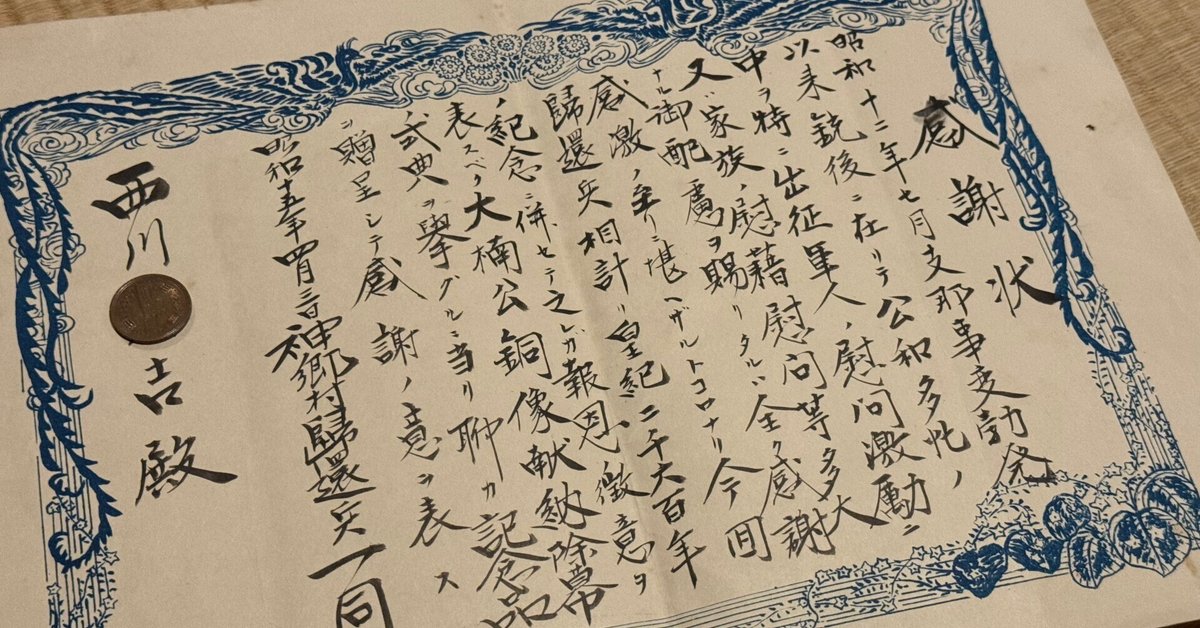 感謝状
昭和十二年七月支那事変勃発
以来銃後ニ在リテ公私多忙ノ
中ヲ特ニ出征軍人ノ慰問激励ニ
又ハ家族ノ慰藉慰問等多大
ナル御配慮ヲ賜リタルハ全ク感謝
感激ノ至リニ堪ヘザルトコロナリ今回
歸還兵相計リ皇紀二千六百年
ノ紀念ニ併セテ之レガ報恩ノ微意ヲ
表スベク大楠公銅像献納除幕
式典ヲ擧グルニ当リ聊カ記念品
ヲ贈呈シテ感謝ノ意ヲ表ス
昭和十五年四月三日
神郷村歸還兵一同
西川
吉殿